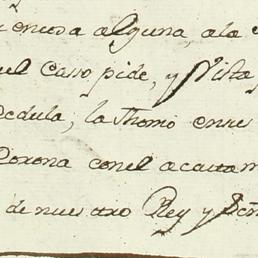 encusa alguna, a la
el Caso pide, y Vista
Cedula, la thomó en sus
Corona con el acatam
de nuestro Rey y Señ